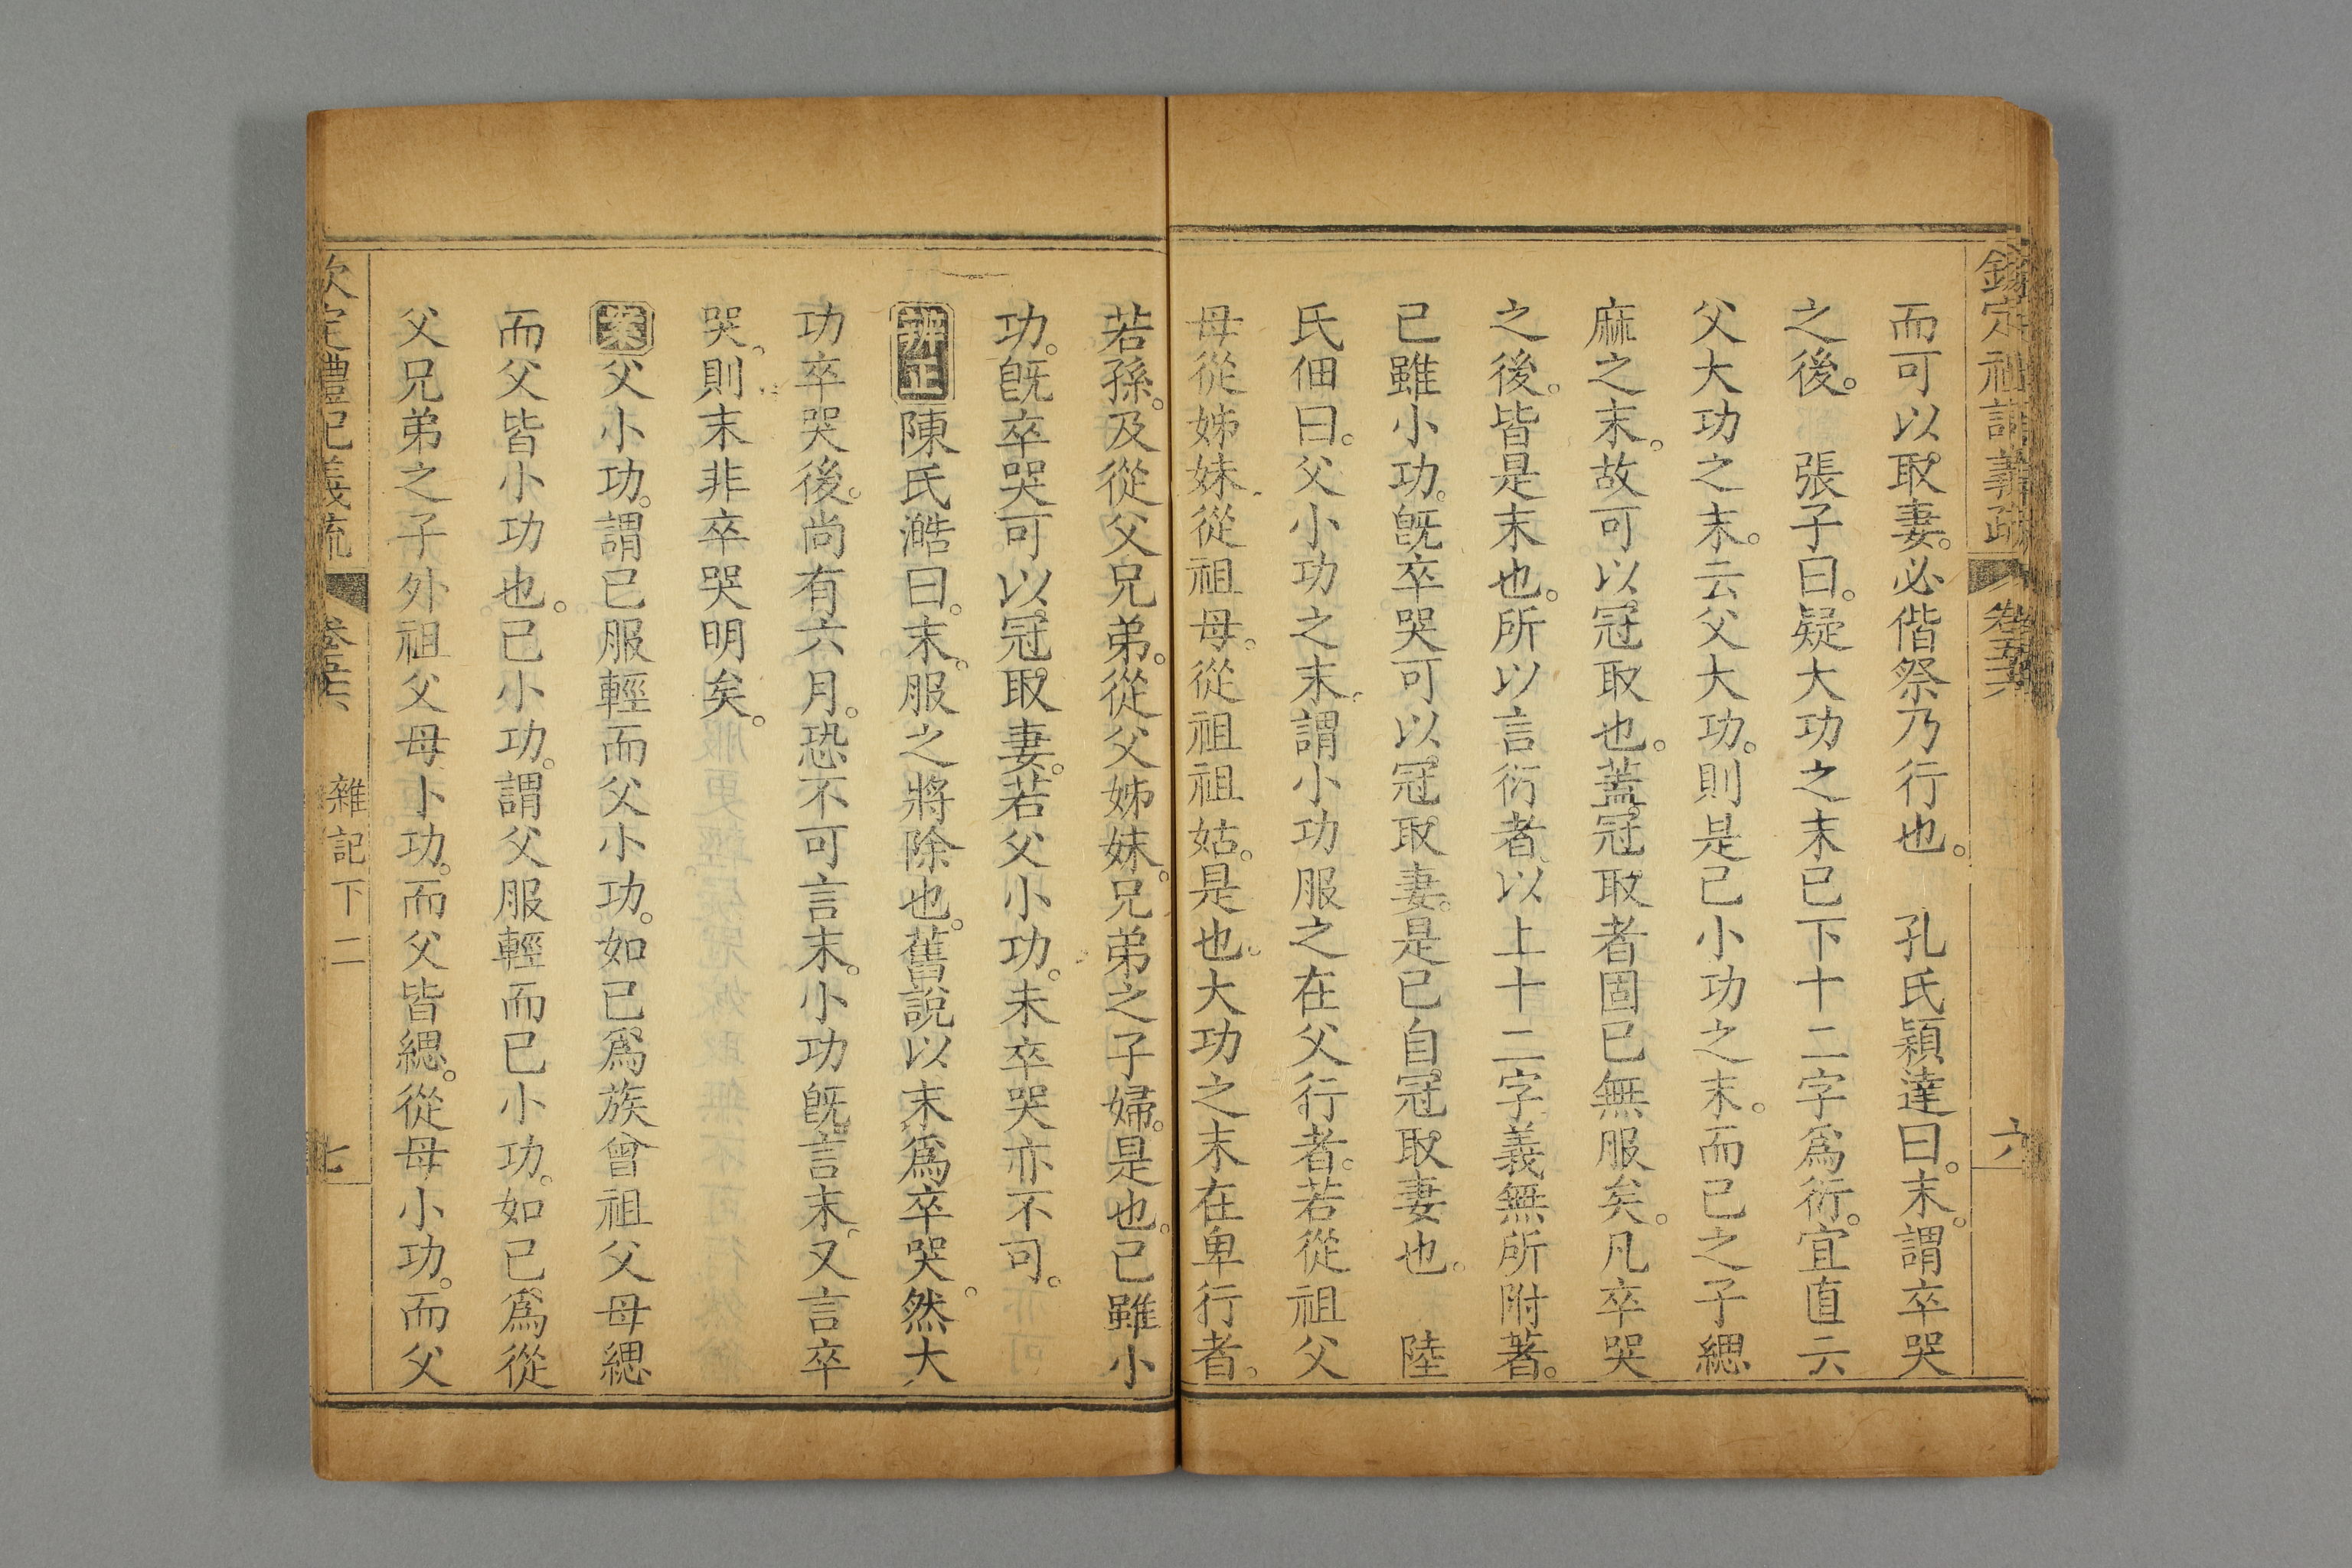 欽定禮記義疏 卷五十六 六
而可以取妻。必偕祭乃行也。 孔氏穎達曰。末。謂卒哭
之後。 張子曰。疑大功之末已下十二字爲衍。宜直云
父大功之末。云父大功。則是己小功之末。而己之子緦
麻之末。故可以冠取也。蓋冠取者固已無服矣。凡卒哭
之後。皆是末也。所以言衍者。以上十二字義無所附著。
己雖小功。旣卒哭可以冠取妻。是己自冠取妻也。 陸
氏佃曰。父小功之末。謂小功服之在父行者。若從祖父
母從姊妹。從祖祖母。從祖祖姑。是也。大功之末在卑行者。
若孫。及從父兄弟。從父姊妹。兄弟之子婦。是也。己雖小
功。旣卒哭可以冠取妻。若父小功。未卒哭亦不可。
辨正陳氏澔曰。末。服之將除也。舊說以末爲卒哭。然大
功卒哭後。尚有六月。恐不可言末。小功旣言末。又言卒
哭。則末非卒哭明矣。
案父小功。謂己服輕而父小功。如己爲族曾祖父母緦
而父皆小功也。己小功。謂父服輕而己小功。如己爲從
父兄弟之子外祖父母小功。而父皆緦。從母小功。而父
欽定禮記義疏 卷五十六 雜記下二 七